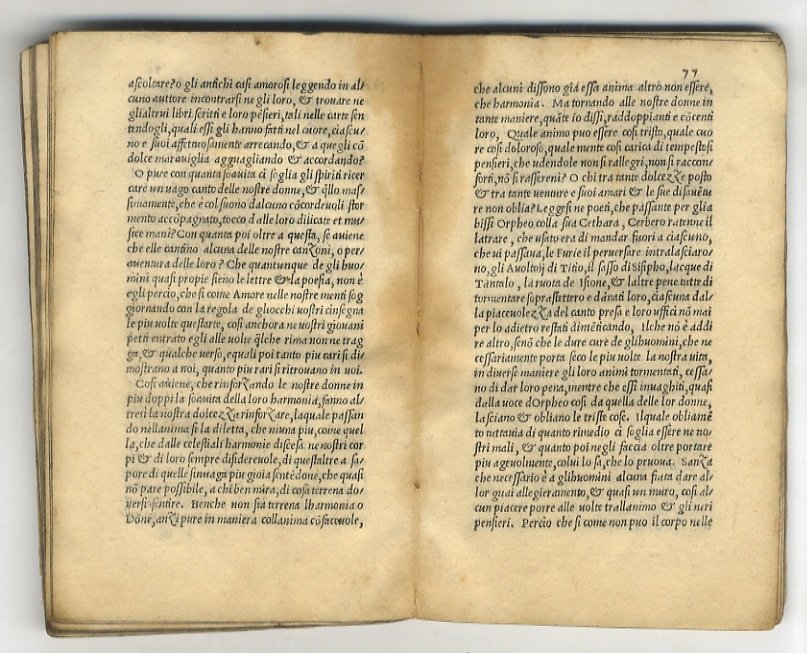 ascoltare? o gli antichi casi amorosi leggendo in al/
cuno auttore incontrarsi ne gli loro, & trouare ne
glialtrui libri scritti e loro pẽsieri, tali nelle carte sen
tendogli, quali essi gli hanno fatti nel cuore, ciascu/
no e suoi affettuosamente arrecando, & a quegli cõ
dolce marauiglia agguagliando & accordando?
O pure con quanta soauita ci soglia gli spiriti ricer
care un uago canto delle nostre donne, & q̃llo mas/
simamente, che è col suono dalcuno cõcordeuoli stor
mento accõpagnato, tocco dalle loro dilicate et mu/
sice mani? Con quanta poi oltre a questa, se auiene
che elle cantino alcuna delle nostre canzoni, o per
auentura delle loro? Che quantunque de gli huo/
mini quasi propie sieno le lettre & la poesia, non è
egli percio, che si come Amore nelle nostre menti sog
giornando con la regola de gliocchi uostri cinsegna
le piu uolte questarte, cosi anchora ne uostri giouani
petti entrato egli alle uolte q̃lche rima non ne trag
ga, & qualche uerso, e quali poi tanto piu cari si di/
mostrano a noi, quanto piu rari si ritrouano in uoi.
Cosi auiene, che rinforzando le nostre donne in
piu doppi la soauita della loro harmonia, fanno al/
tresi la nostra dolcezza rinforzare, laquale passan
do nellanima si la diletta, che niuna piu, come quel
la, che dalle celestiali harmonie discesa ne nostri cor
pi & di loro sempre disiderevole, di questaltre a sa/
pore di quelle sinuaga piu gioia sentẽdone, che quasi
nõ pare possibile, a chi ben mira, di cosa terrena do
uersi sentire. Benche non sia terrena lharmonia o
Dõne, anzi pure in maniera collanima cõfaceuole,
77
che alcuni dissono gia essa anima altro non essere,
che harmonia. Ma tornando alle nostre donne in
tante maniere, quãte io dissi, raddoppianti e cõcenti
loro, Quale animo puo essere cosi tristo, quale cuo
re cosi doloroso, quale mente cosi carica di tempestosi
pensieri, che udendole non si rallegri, non si raccon/
forti, nõ si rassereni? O chi tra tante dolcezze posto
& tra tante uenture e suoi amari & le sue disauẽtu
re non oblia? Leggesi ne poeti, che passante per glia
bissi Orpheo colla sua Cethara, Cerbero ratenne il
latrare, che usato era di mandar fuori a ciascuno,
che ui passaua, le Furie il peruersare intralasciaro/
no, gli Auoltoij di Titio, il sasso di Sisipho, lacque di
Tantalo, la ruota de Isione, & laltre pene tutte di
tormentare soprastettero e dãnati loro, ciascuna dal/
la piaceuolezza del canto presa e loro uffici nõ mai
per lo adietro restati dimẽticando, Ilche nõ è addi
re altro, senõ che le dure cure de glihuomini, che ne
cessariamente porta seco le piu uolte la nostra uita,
in diuerse maniere gli loro animi tormentati, cessa/
no di dar loro pena, mentre che essi inuaghiti, quasi
dalla uoce dOrpheo cosi da quella delle lor donne,
lasciano & obliano le triste cose. Ilquale obliamẽ
to tuttauia di quanto rimedio ci soglia essere ne no/
stri mali, & quanto poi negli faccia oltre portare
piu ageuolmente, colui lo sa, che lo pruoua. Sanza
che necessario è a glihuomini alcuna fiata dare al/
lor guai allegieramento, & quasi un muro, cosi al/
cun piacere porre alle uolte trallanimo & gli neri
pensieri. Percio che si come non puo il corpo nelle